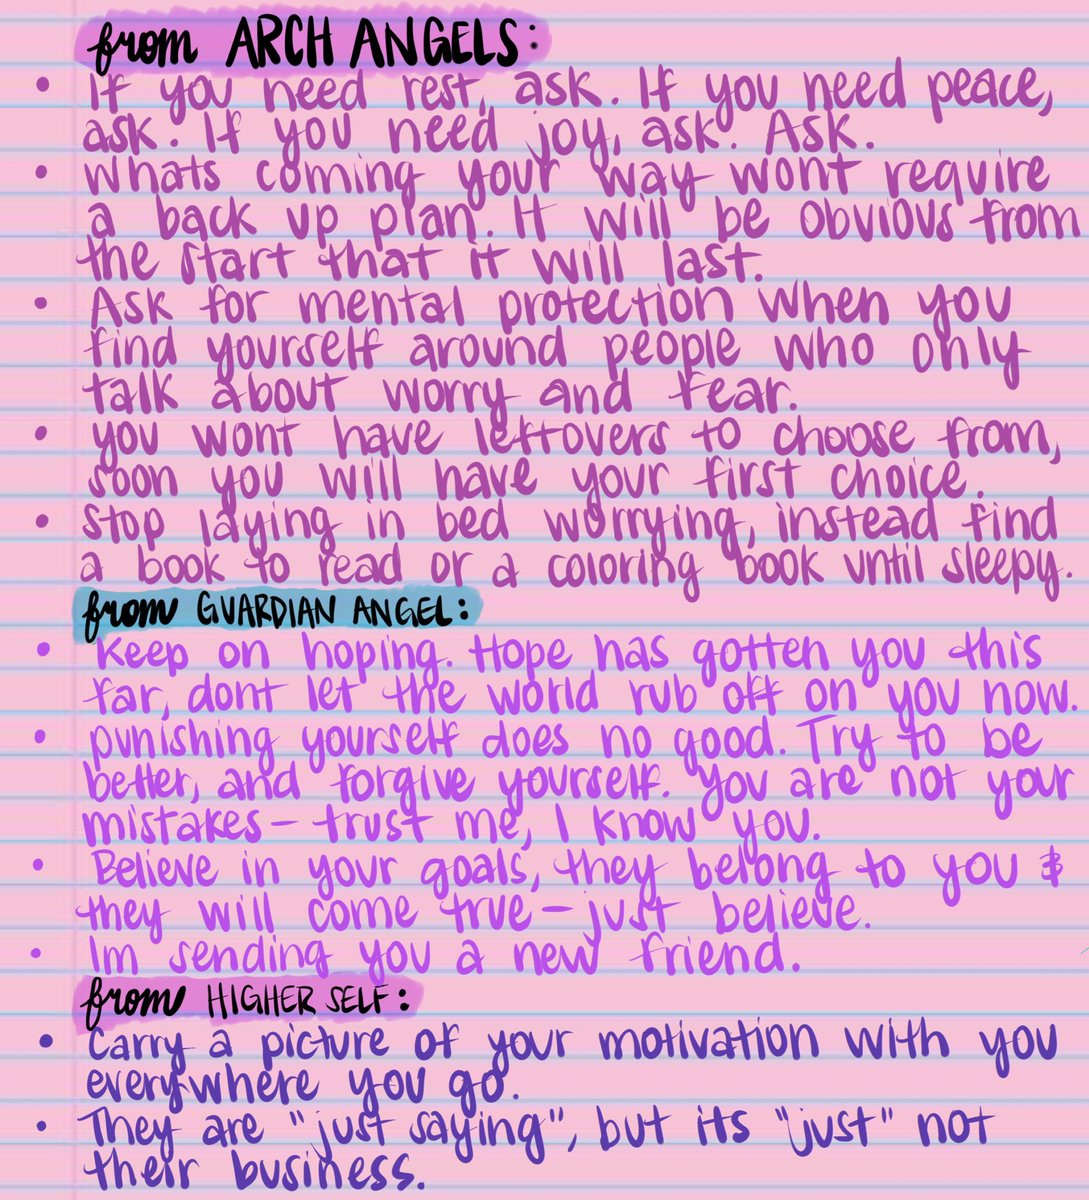 from ARCH ANGELS:
• If you need rest, ask. If you need peace,
ask. If you need joy, ask. Ask.
• Whats coming your way wont require
a back up plan. It will be obvious from
the start that it will last.
• Ask for mental protection when you
find yourself around people who only
talk about worry and fear.
• you wont have leftovers to choose from,
soon you will have your first choice.
• Stop laying in bed worrying, instead find
a book to read or a coloring book until sleepy.
from GUARDIAN ANGEL:
• Keep on hoping. Hope has gotten you this
far, dont let the world rub off on you now.
• punishing yourself does no good. Try to be
better, and forgive yourself. You are not your
mistakes - trust me, I know you.
• Believe in your goals, they belong to you &
they will come true - just believe.
• Im sending you a new friend.
from HIGHER SELF:
• Carry a picture of your motivation with you
everywhere you go.
• They are "just saying", but its "just" not
their business.